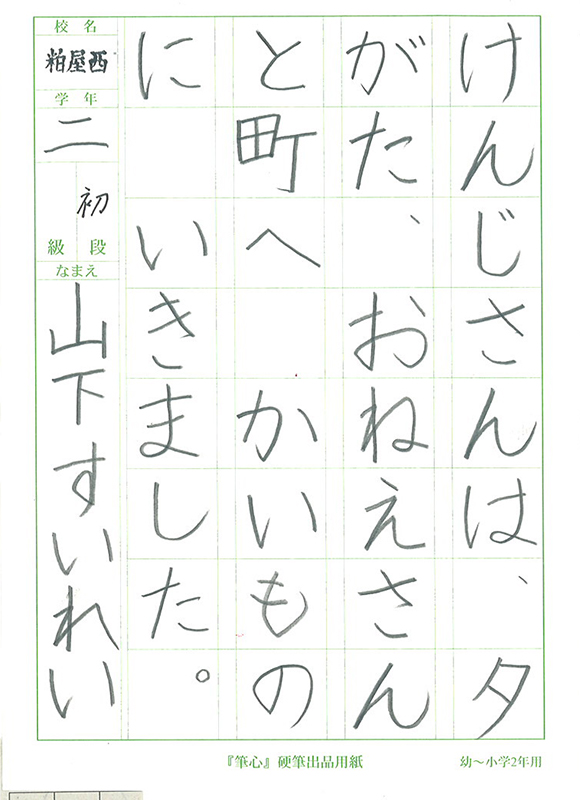 けんじさんは、夕
がた、おねえさん
と町へ　かいもの
に　いきました。
校名
粕屋西
学年
二
初
級段
なまえ
山下すいれい
『筆心』硬筆出品用紙
幼〜小学2年用